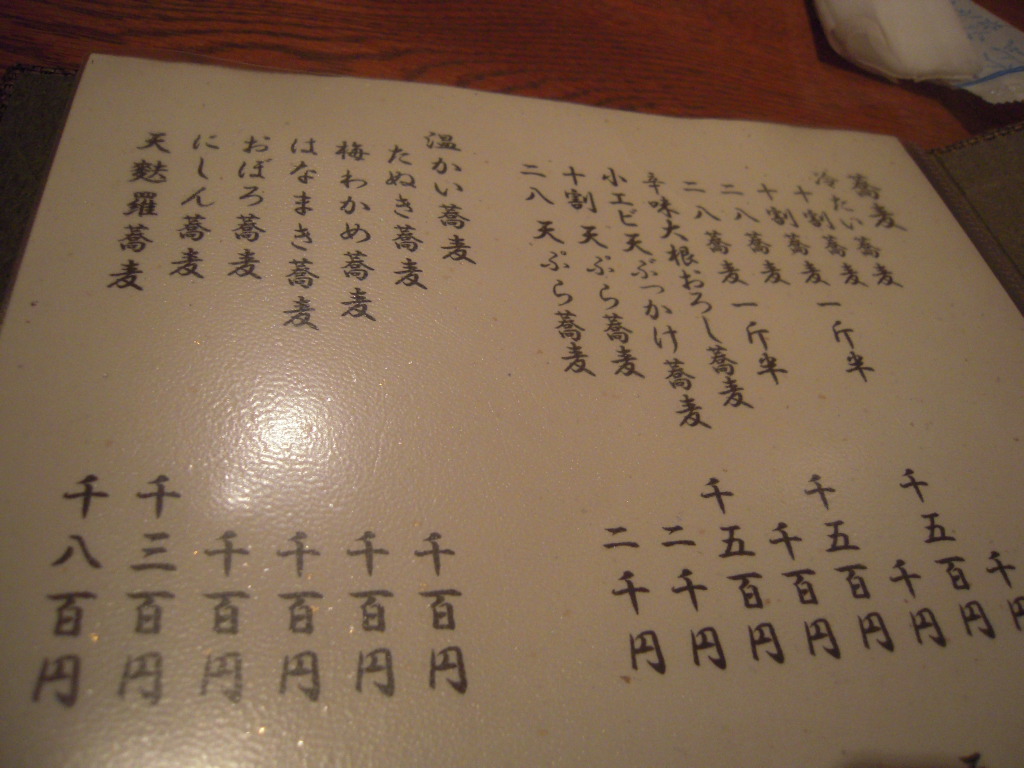 蕎麦
冷たい蕎麦
十割蕎麦 千円
十割蕎麦一斤半 千五百円
二八蕎麦 千円
二八蕎麦一斤半 千五百円
辛味大根おろし蕎麦 千百円
小エビ天ぶっかけ蕎麦 千五百円
十割 天ぷら蕎麦 二千円
二八 天ぷら蕎麦 二千円
温かい蕎麦
たぬき蕎麦 千百円
梅わかめ蕎麦 千百円
はなまき蕎麦 千百円
おぼろ蕎麦 千百円
にしん蕎麦 千三百円
天麩羅蕎麦 千八百円